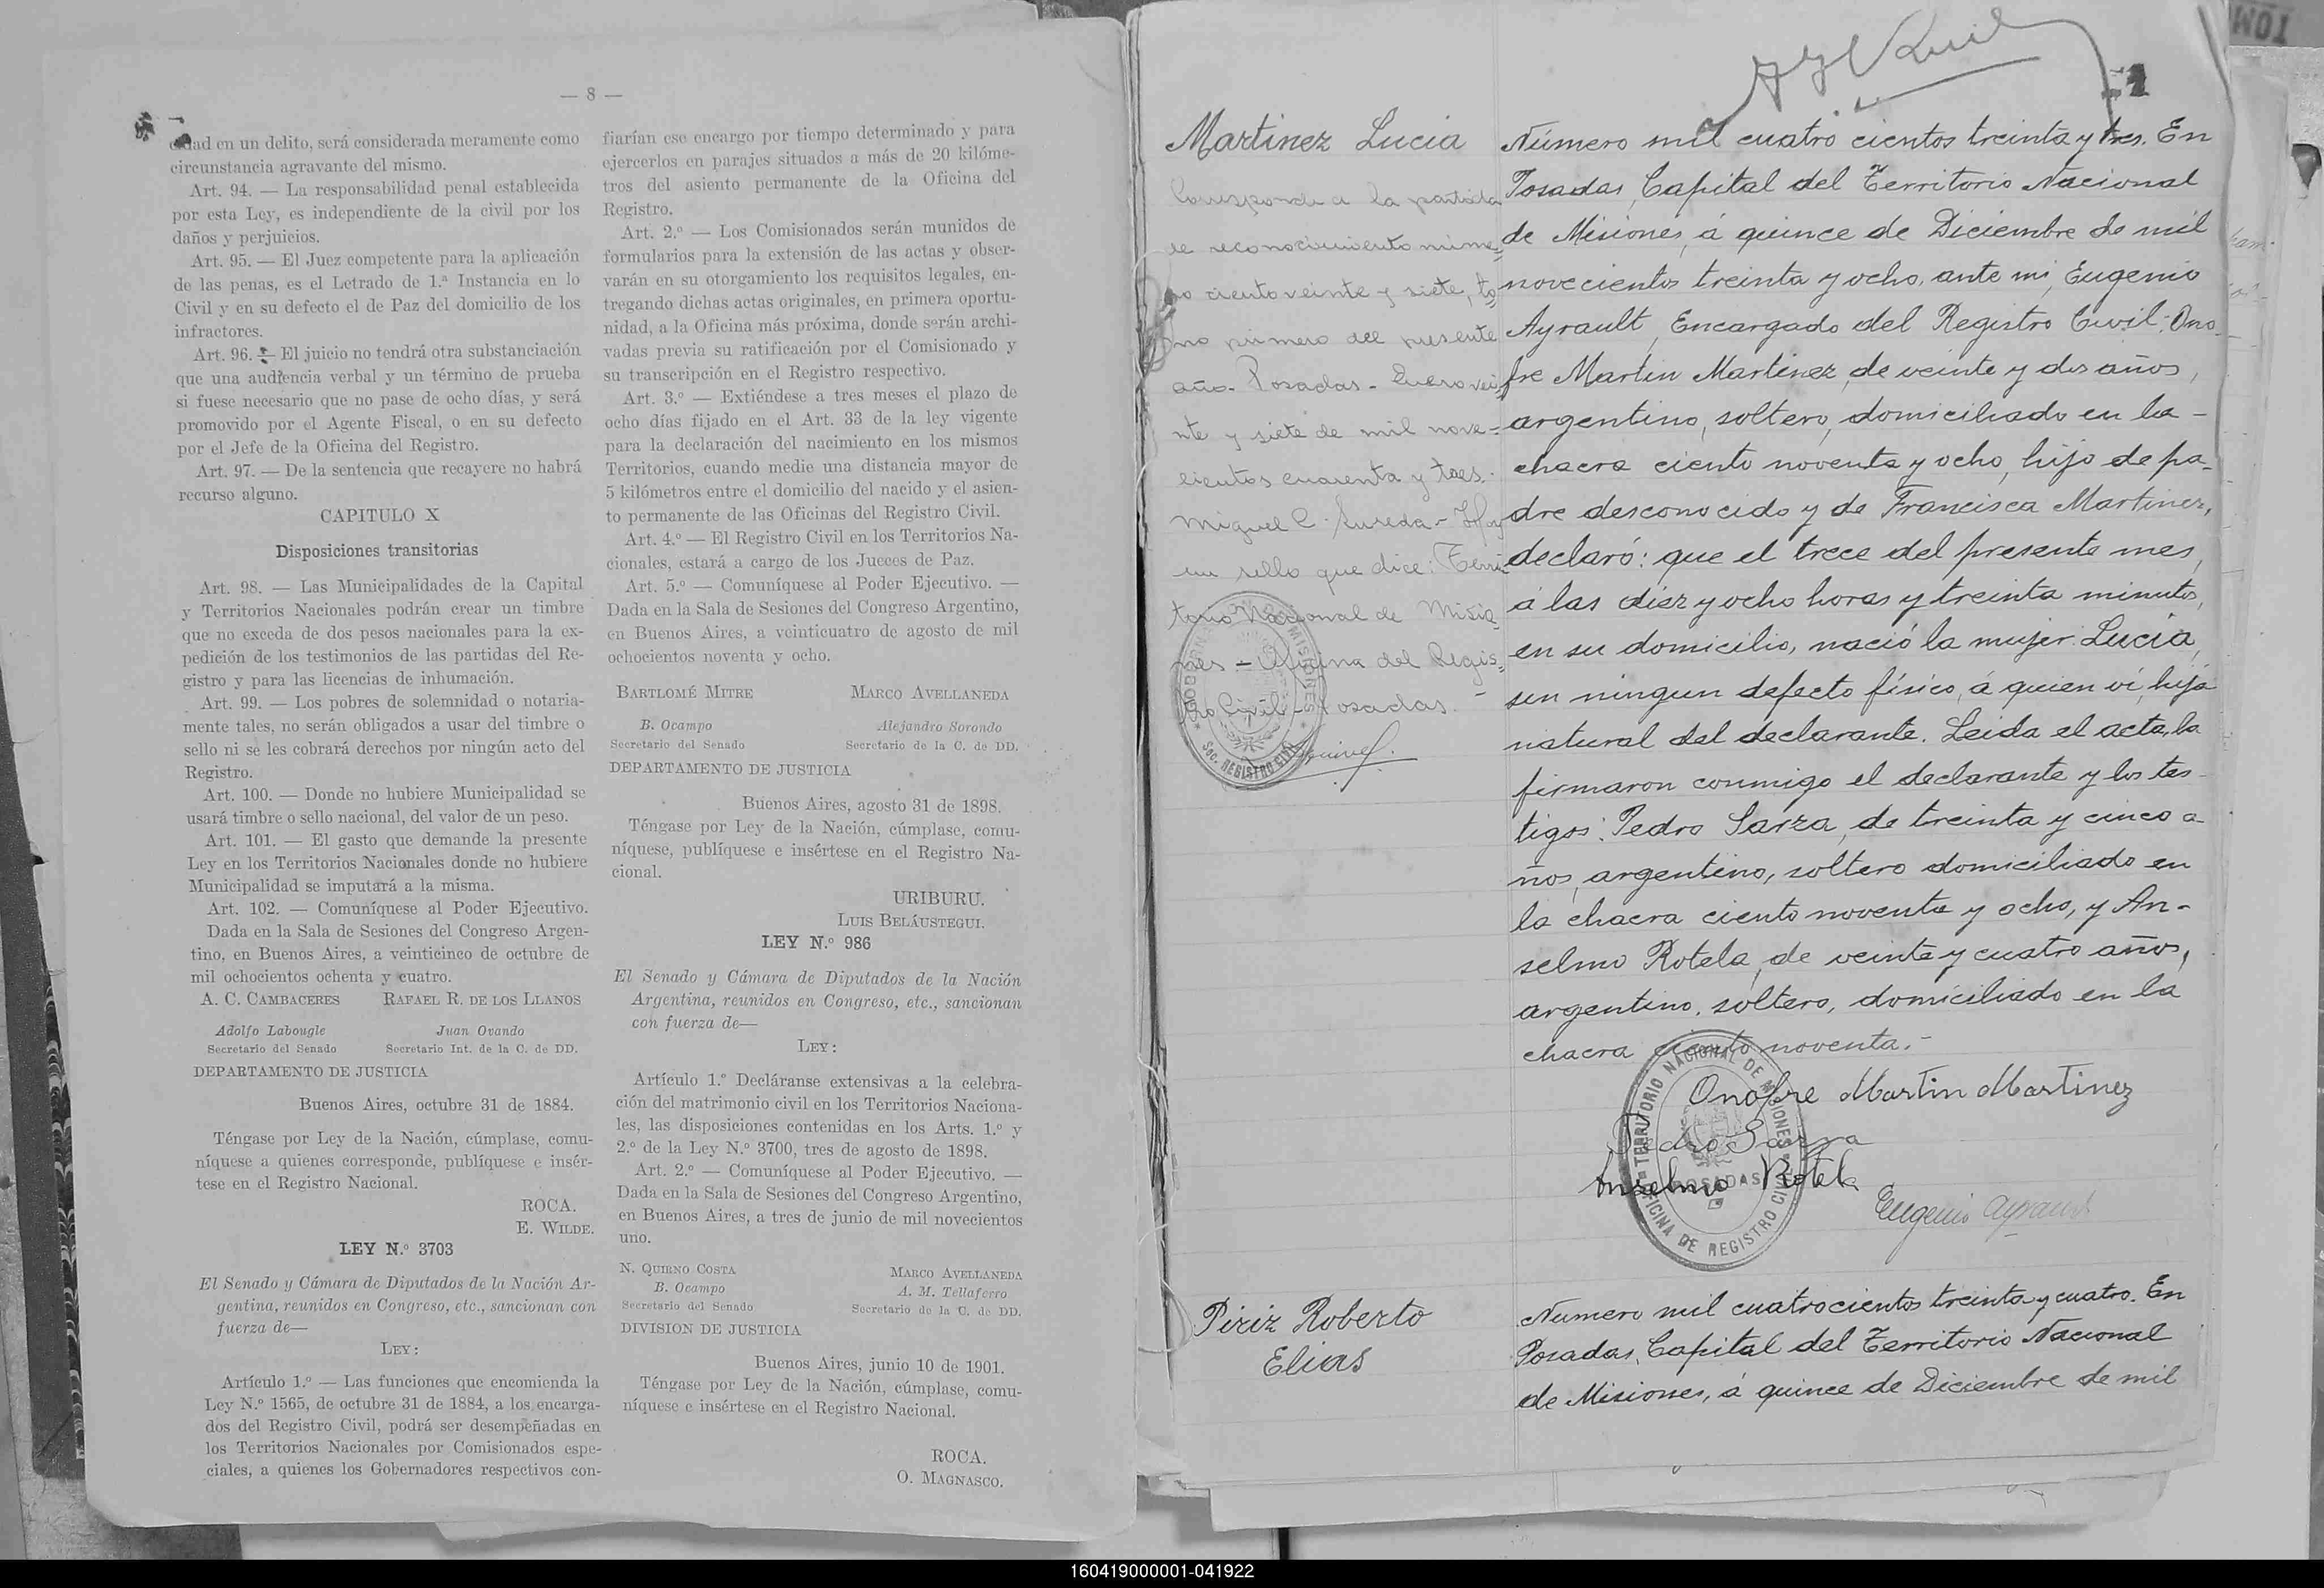 — 8 —
en un delito, será considerada meramente como
circunstancia agravante del mismo.
Art. 94. — La responsabilidad penal establecida
por esta Ley, es independiente de la civil por los
daños y perjuicios.
Art. 95. — El Juez competente para la aplicación
de las penas, es el Letrado de 1.ª Instancia en lo
Civil y en su defecto el de Paz del domicilio de los
infractores.
Art. 96. — El juicio no tendrá otra substanciación
que una audiencia verbal y un término de prueba
si fuese necesario que no pase de ocho días, y será
promovido por el Agente Fiscal, o en su defecto
por el Jefe de la Oficina del Registro.
Art. 97. — De la sentencia que recayere no habrá
recurso alguno.
CAPITULO X
Disposiciones transitorias
Art. 98. — Las Municipalidades de la Capital
y Territorios Nacionales podrán crear un timbre
que no exceda de dos pesos nacionales para la ex-
pedición de los testimonios de las partidas del Re-
gistro y para las licencias de inhumación.
Art. 99. — Los pobres de solemnidad o notaria-
mente tales, no serán obligados a usar del timbre o
sello ni se les cobrará derechos por ningún acto del
Registro.
Art. 100. — Donde no hubiere Municipalidad se
usará timbre o sello nacional, del valor de un peso.
Art. 101. — El gasto que demande la presente
Ley en los Territorios Nacionales donde no hubiere
Municipalidad se imputará a la misma.
Art. 102. — Comuníquese al Poder Ejecutivo.
Dada en la Sala de Sesiones del Congreso Argen-
tino, en Buenos Aires, a veinticinco de octubre de
mil ochocientos ochenta y cuatro.
A. C. CAMBACERES RAFAEL R. DE LOS LLANOS
Adolfo Labougle Juan Ovando
Secretario del Senado Secretario Int. de la C. de DD.
DEPARTAMENTO DE JUSTICIA
Buenos Aires, octubre 31 de 1884.
Téngase por Ley de la Nación, cúmplase, comu-
níquese a quienes corresponde, publíquese e insér-
tese en el Registro Nacional.
ROCA.
E. WILDE.
LEY N.º 3703
El Senado y Cámara de Diputados de la Nación Ar-
gentina, reunidos en Congreso, etc., sancionan con
fuerza de—
LEY:
Artículo 1.º — Las funciones que encomienda la
Ley N.º 1565, de octubre 31 de 1884, a los encarga-
dos del Registro Civil, podrá ser desempeñadas en
los Territorios Nacionales por Comisionados espe-
ciales, a quienes los Gobernadores respectivos con-
fiarían ese encargo por tiempo determinado y para
ejercerlos en parajes situados a más de 20 kilóme-
tros del asiento permanente de la Oficina del
Registro.
Art. 2.º — Los Comisionados serán munidos de
formularios para la extensión de las actas y obser-
varán en su otorgamiento los requisitos legales, en-
tregando dichas actas originales, en primera oportu-
nidad, a la Oficina más próxima, donde serán archi-
vadas previa su ratificación por el Comisionado y
su transcripción en el Registro respectivo.
Art. 3.º — Extiéndese a tres meses el plazo de
ocho días fijado en el Art. 33 de la ley vigente
para la declaración del nacimiento en los mismos
Territorios, cuando medie una distancia mayor de
5 kilómetros entre el domicilio del nacido y el asien-
to permanente de las Oficinas del Registro Civil.
Art. 4.º — El Registro Civil en los Territorios Na-
cionales, estará a cargo de los Jueces de Paz.
Art. 5.º — Comuníquese al Poder Ejecutivo. —
Dada en la Sala de Sesiones del Congreso Argentino,
en Buenos Aires, a veinticuatro de agosto de mil
ochocientos noventa y ocho.
BARTLOMÉ MITRE MARCO AVELLANEDA
B. Ocampo Alejandro Sorondo
Secretario del Senado Secretario de la C. de DD.
DEPARTAMENTO DE JUSTICIA
Buenos Aires, agosto 31 de 1898.
Téngase por Ley de la Nación, cúmplase, comu-
níquese, publíquese e insértese en el Registro Na-
cional.
URIBURU.
LUIS BELÁUSTEGUI.
LEY N.º 986
El Senado y Cámara de Diputados de la Nación
Argentina, reunidos en Congreso, etc., sancionan
con fuerza de—
LEY:
Artículo 1.º Decláranse extensivas a la celebra-
ción del matrimonio civil en los Territorios Naciona-
les, las disposiciones contenidas en los Arts. 1.º y
2.º de la Ley N.º 3700, tres de agosto de 1898.
Art. 2.º — Comuníquese al Poder Ejecutivo. —
Dada en la Sala de Sesiones del Congreso Argentino,
en Buenos Aires, a tres de junio de mil novecientos
uno.
N. QUIRNO COSTA MARCO AVELLANEDA
B. Ocampo A. M. Tellaferro
Secretario del Senado Secretario de la C. de DD.
DIVISION DE JUSTICIA
Buenos Aires, junio 10 de 1901.
Téngase por Ley de la Nación, cúmplase, comu-
níquese e insértese en el Registro Nacional.
ROCA.
O. MAGNASCO.
Martinez Lucia
Corresponde a la partida
de reconocimiento nume-
ro ciento veinte y siete, to-
mo primero del presente
año. Posadas. Enero vein-
te y siete de mil nove-
cientos cuarenta y tres.
Miguel C. Sureda - Hay
un sello que dice: Terri-
torio Nacional de Misio-
nes - Oficina del Regis-
tro Civil - Posadas. -
GOBERN MISIONES
Sec. REGISTRO CIVIL
1
Número mil cuatro cientos treinta y tres. En
Posadas, Capital del Territorio Nacional
de Misiones, á quince de Diciembre de mil
novecientos treinta y ocho, ante mi, Eugenio
Ayrault, Encargado del Registro Civil: Ono-
fre Martin Martinez, de veinte y dos años,
argentino, soltero, domiciliado en la -
chacra ciento noventa y ocho, hijo de pa-
dre desconocido y de Francisca Martinez,
declaró: que el trece del presente mes,
á las diez y ocho horas y treinta minutos,
en su domicilio, nació la mujer: Lucia,
sin ningun defecto físico, á quien ví, hija
natural del declarante. Leida el acta, la
firmaron conmigo el declarante y los tes-
tigos: Pedro Sarza, de treinta y cinco a-
ños, argentino, soltero domiciliado en
la chacra ciento noventa y ocho, y An-
selmo Rotela, de veinte y cuatro años,
argentino, soltero, domiciliado en la
chacra ciento noventa. -
Onofre Martin Martinez
Pedro Sarza
Anselmo Rotela
Eugenio Ayrault
TERRITORIO NACIONAL DE MISIONES
POSADAS
OFICINA DE REGISTRO CIVIL
Piriz Roberto
Elias
Numero mil cuatrocientos treinta y cuatro. En
Posadas, Capital del Territorio Nacional
de Misiones, á quince de Diciembre de mil
TOM
160419000001-041922